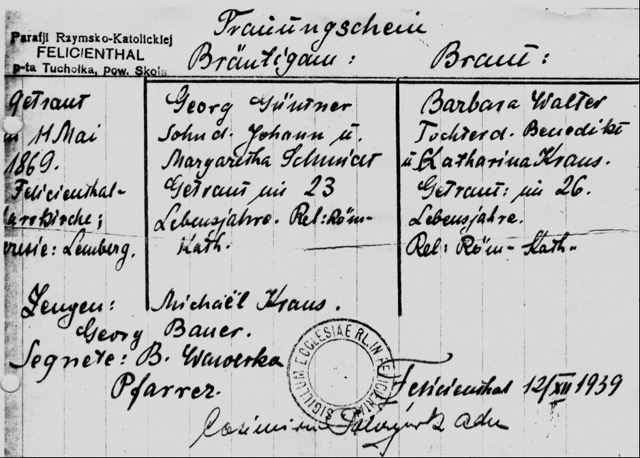 Trauungschein
Parafji Rzymsko-Katolickiej
FELICIENTHAL
p-ta Tuchołka, pow. Skole
Bräutigam: Braut:
Getraut
11 Mai
1869.
Felicienthal-
Pfarrkirche;
Lemberg.
Georg Güntner
Sohn d. Johann u.
Margaretha Schmidt
Getraut im 23
Lebensjahre. Rel: Röm-
Kath.
Barbara Walter
Tochter d. Benedikt
u. Katharina Kraus.
Getraut: im 26.
Lebensjahre.
Rel: Röm- Kath-
Zeugen: Michaël Kraus.
Georg Bauer.
Segnete: B. Wawerka
Pfarrer.
SIGILLUM ECCLESIAE R.L. IN FELICIENTHAL
Felicienthal 12/XII 1939
Casimirus